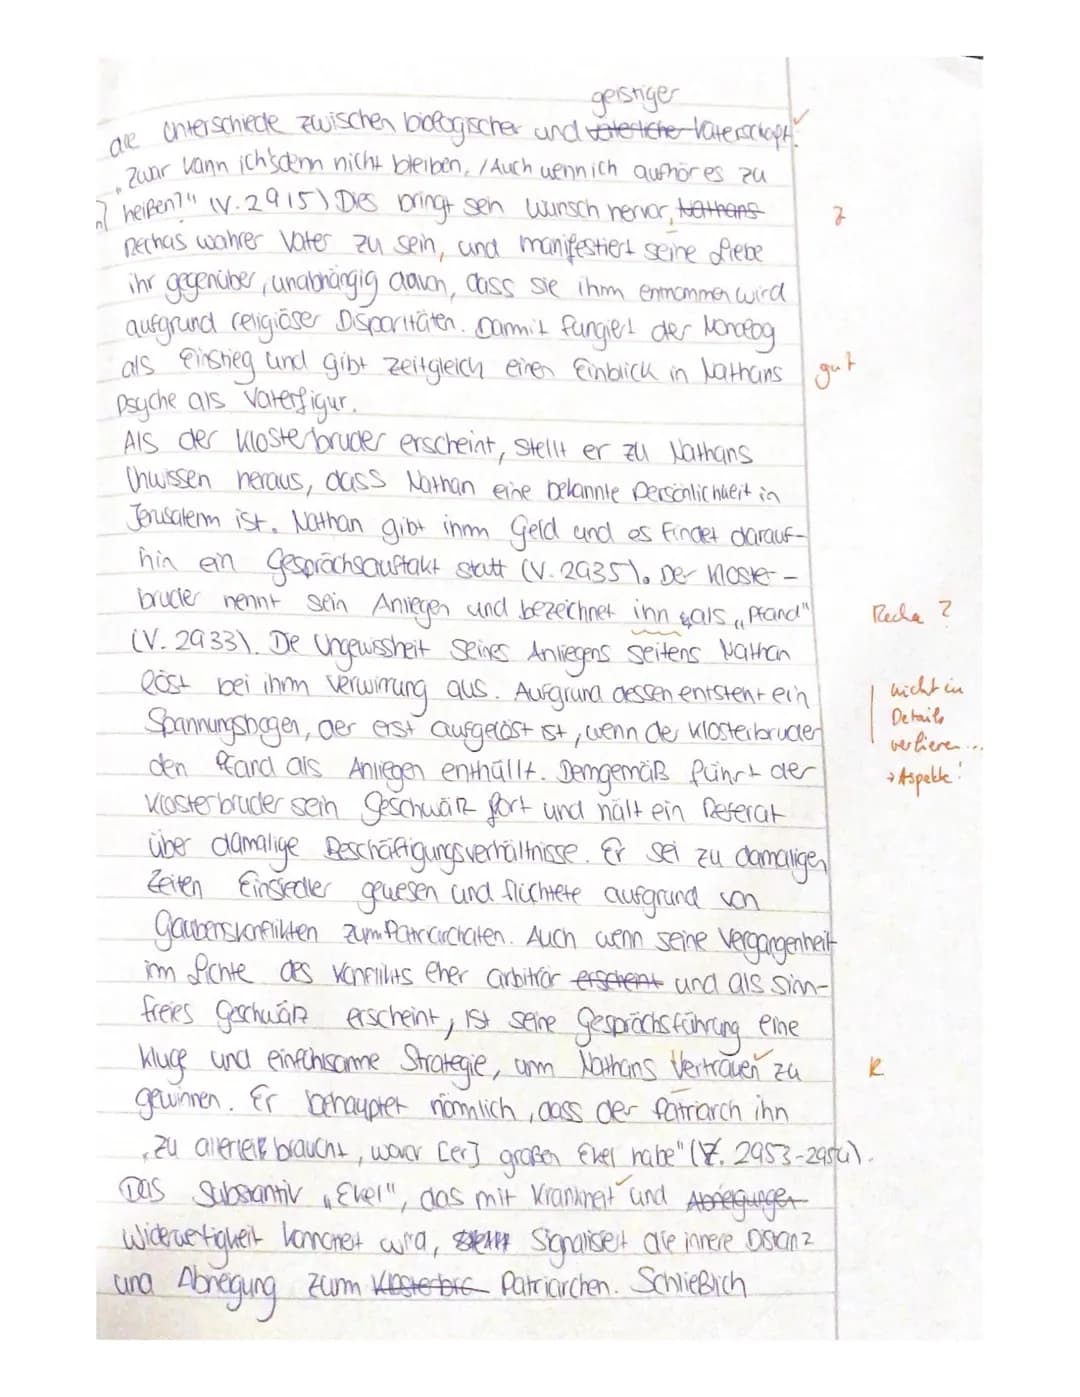 geistiger
die Unterschiede zwischen biologischer und väterlicher Vaterschaft:
„Zwar kann ich's denn nicht bleiben, / Auch wenn ich aufhör es zu
heißen?" (V. 2915) Dies bringt sein Wunsch hervor, Nathans
Rechas wahrer Vater zu sein, und manifestiert seine Liebe
ihr gegenüber, unabhängig davon, dass sie ihm entnommen wird
aufgrund religiöser Disparitäten. Damit fungiert der Monolog
als Einstieg und gibt zeitgleich einen Einblick in Nathans
gut
Psyche als Vaterfigur.
Als der Klosterbruder erscheint, stellt er zu Nathans
Unwissen heraus, dass Nathan eine bekannte Persönlichkeit in
Jerusalem ist. Nathan gibt ihm Geld und es findet darauf-
hin ein Gesprächsauftakt statt (V. 2935). Der Kloster-
bruder nennt sein Anliegen und bezeichnet ihn als „Pfand"
Recha ?
(V. 2933). Die Ungewissheit seines Anliegens seitens Nathan
löst bei ihm Verwirrung aus. Aufgrund dessen entsteht ein
nicht in
Details
verlieren...
→ Aspekte!
Spannungsbogen, der erst aufgelöst ist, wenn der Klosterbruder
den Pfand als Anliegen enthüllt. Demgemäß führt der
Klosterbruder sein Geschwätz fort und hält ein Referat
über damalige Beschäftigungsverhältnisse. Er sei zu damaligen
Zeiten Einsiedler gewesen und flüchtete aufgrund von
Glaubenskonflikten zum Patriarchaten. Auch wenn seine Vergangenheit
im Lichte des Konflikts eher arbiträr erscheint und als sinn-
freies Geschwätz erscheint, ist seine Gesprächsführung eine
kluge und einfühlsame Strategie, um Nathans Vertrauen zu
R
gewinnen. Er behauptet nämlich, dass der Patriarch ihn
„zu allerlei braucht, wovor [er] großen Ekel habe" (V. 2953-2954).
Das Substantiv „Ekel", das mit Krankheit und Abneigungen
Widerwertigkeit konnotiert wird, signalisiert die innere Distanz
und Abneigung zum Klosterbru Patriarchen. Schließlich